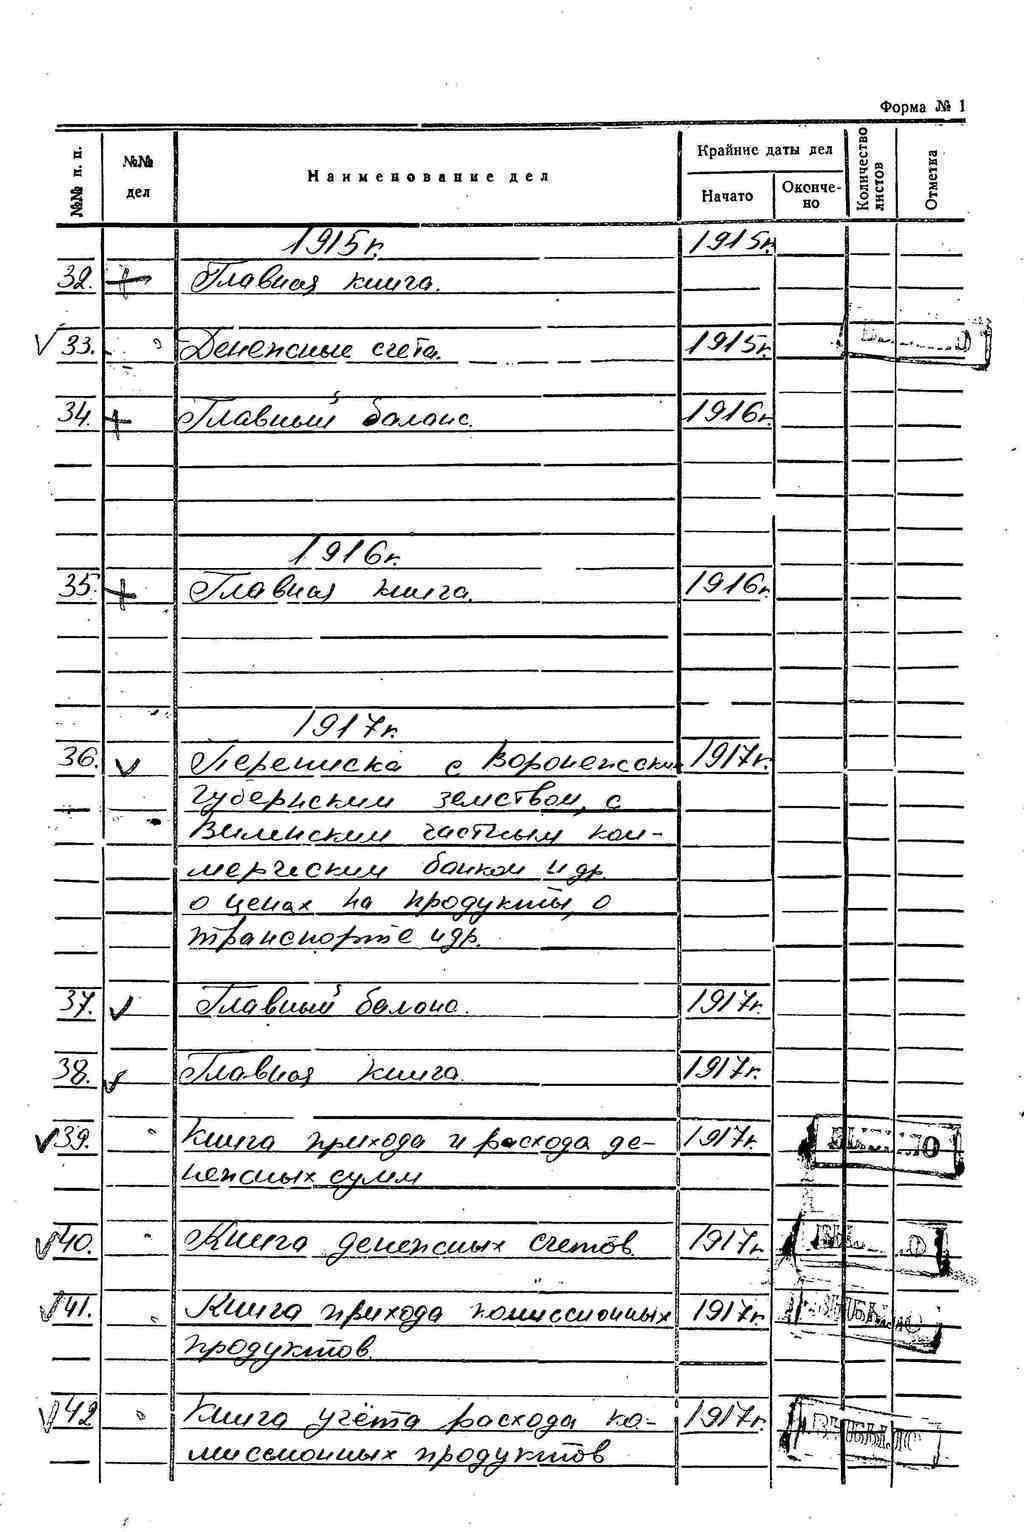 Форма № 1
№№ п. п. №№ дел Наименование дел Крайние даты дел Начато Окончено Количество листов Отметка
1915г. 1915г.
32. + Главная книга.
√ 33. " Денежные счета. 1915г.
34. + Главный баланс. 1916г.
1916г.
35. + Главная книга. 1916г.
1917г.
36. √ Переписка с Воронежским 1917г.
губернским земством, с
Виленским частным ком-
мерческим банком и др.
о ценах на продукты, о
транспорте и др.
37. √ Главный баланс. 1917г.
38. √ Главная книга. 1917г.
√ 39. " Книга прихода и расхода де- 1917г. ВЫБЫЛО
нежных сумм
√ 40. " Книга денежных счетов. 1917г.
√ 41. " Книга прихода комиссионных 1917г. ВЫБЫЛО
продуктов.
√ 42 " Книга учёта расхода ко- 1917г. ВЫБЫЛО
миссионных продуктов